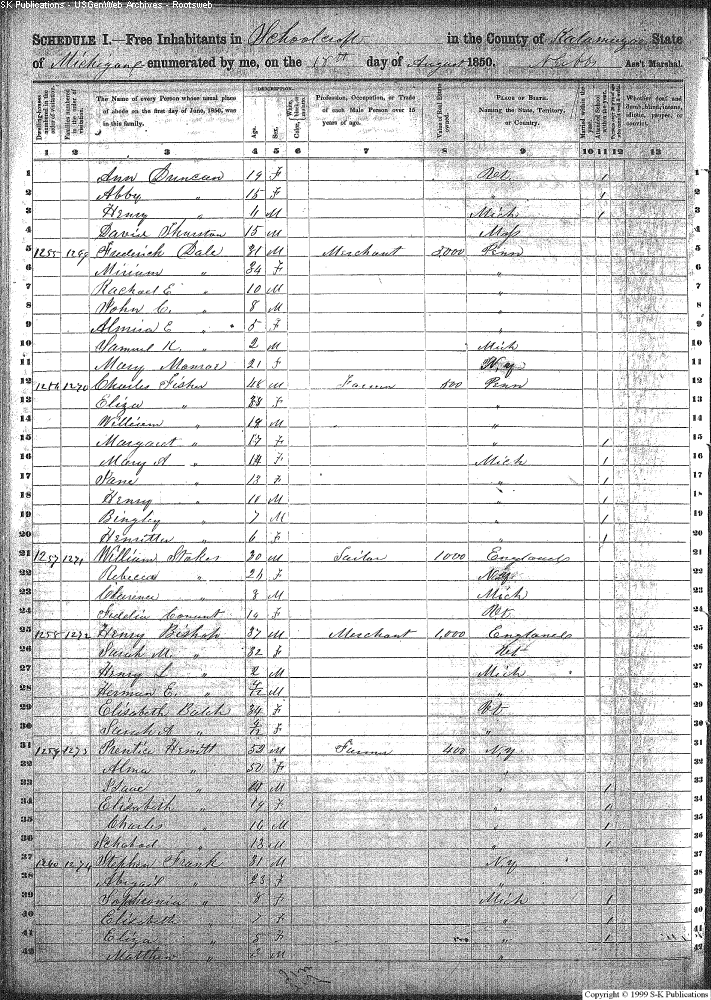 S-K Publications - USGenWeb Archives - Rootsweb
SCHEDULE I.—Free Inhabitants in Schoolcraft in the County of Kalamazoo State
of Michigan enumerated by me, on the day of August 1850. Ass't Marshal.
DESCRIPTION.
Dwelling-houses numbered in the order of visitation. Families numbered in the order of visitation. The Name of every Person whose usual place of abode on the first day of June, 1850, was in this family. Age. Sex. White, black, or mulatto. Color Profession, Occupation, or Trade of each Male Person over 15 years of age. Value of Real Estate owned. PLACE OF BIRTH. Naming the State, Territory, or Country. Married within the year. Attended School within the year. Whether deaf and dumb, blind, insane, idiotic, pauper, or convict.
1 2 3 4 5 6 7 8 9 10 11 12 13
1 Ann Duncan 19 F Vt 1 1
2 Abby " 15 F " 1 2
3 Henry " 11 M Mich 1 3
4 David Thurston 15 M Mass 4
5 1255 1269 Frederick Dale 31 M Merchant 3,000 Penn 5
6 Miriam " 34 F " 6
7 Rachael E " 10 M " 7
8 John C. " 8 M " 8
9 Almira E " 5 F " 9
10 Samuel K. " 2 M Mich 10
11 Mary Monroe 21 F N.y 11
12 1256 1270 Charles Fisher 48 M Farmer 800 Penn 12
13 Eliza " 38 F " 13
14 William " 18 M " " 14
15 Margaret " 17 F " 1 15
16 Mary A " 14 F Mich 1 16
17 Jane " 13 F " 1 17
18 Henry " 10 M " 1 18
19 Bingley " 7 M " 1 19
20 Henritta " 6 F " 1 20
21 1257 1271 William Stokes 30 M Tailor 1000 England 21
22 Rebecca " F N.y 22
23 Clarence " 3 M Mich 23
24 Fidelia Conant 19 F Vt. 24
25 1258 1272 Henry Bishop 37 M Merchant 1,000 England 25
26 Sarah M. " 32 F Vt 26
27 Henry L " 2 M Mich 27
28 Herman E. " M " 28
29 Elisabeth Balch 34 F Vt 29
30 Sarah A " F " 30
31 1259 1273 Prentice Hewitt 52 M Farmer 400 N.y 31
32 Alma " 50 F " 32
33 Isaac " M " 1 33
34 Elisabeth " 19 F " 1 34
35 Charles " 16 M " 1 35
36 " 13 M " 1 36
37 1260 1274 Stephen Frank 31 M N.y 37
38 Abigail " 23 F " 38
39 Sophronia " 8 F Mich 1 39
40 Elisabeth " 7 F " 1 40
41 Eliza " 5 F " 1 41
42 Matthew " 3 M " 42
Copyright © 1999 S-K Publications